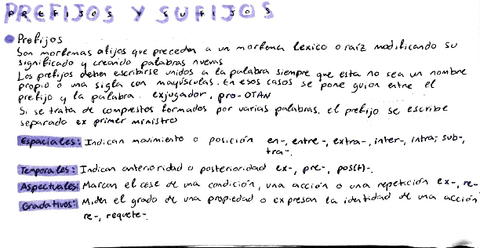 PREFIJOS Y SUFIJOS
Prefijos
Son morfemas afijos que preceden a un morfema lexico o raíz modificando su
significado y creando palabras nuevas
Los prefijos deben escribirse unidos a la palabra siempre que esta no sea un nombre
propio o una sigla con mayúsculas. En esos casos se pone guion entre el
prefijo y la palabra. exjugador, pro-OTAN
Si se trata de compuestos formados por varias palabras, el prefijo se escribe
separado ex primer ministro
Espaciales: Indican movimiento o posición en-, entre-, extra-, inter-, intra; sub-,
tra-.
Temporales: Indican anterioridad o posterioridad ex-, pre-, pos(t)-.
Aspectuales: Marcan el cese de una condición, una acción o una repetición ex-, re-
Gradativos: Miden el grado de una propiedad o expresan la identidad de una acción
re-, requete-